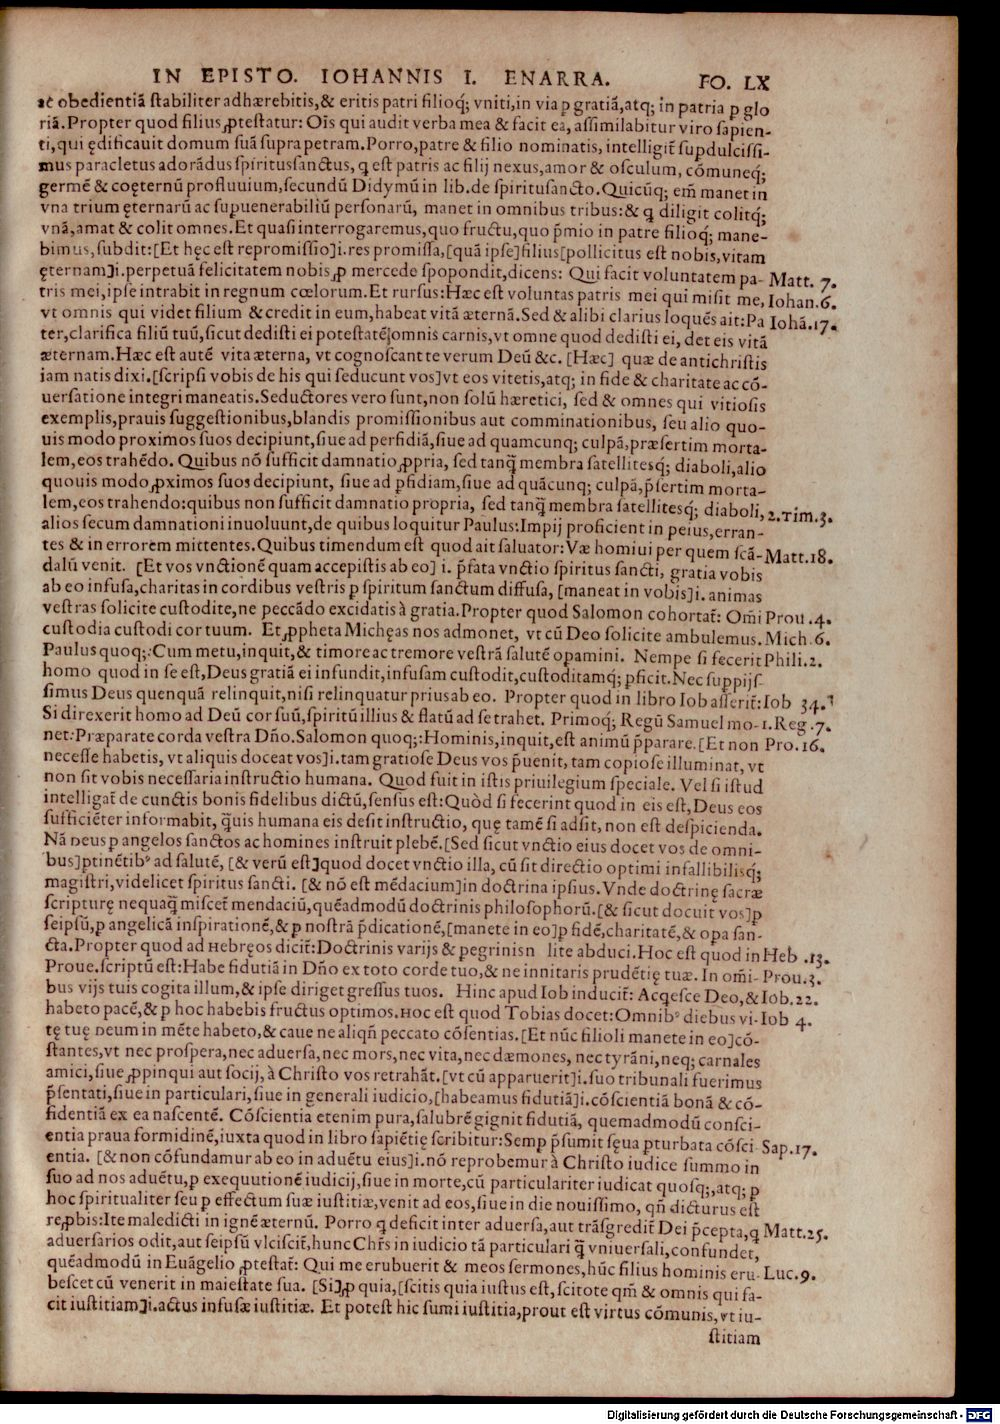 IN EPISTO. IOHANNIS I. ENARRA. FO. LX
ac obedientiā stabiliter adhærebitis,& eritis patri filioq; vniti,in via p gratiā,atq; in patria p glo
riā.Propter quod filius ꝓtestatur: Oīs qui audit verba mea & facit ea, assimilabitur viro sapien-
ti,qui ędificauit domum suā supra petram. Porro, patre & filio nominatis, intelligit̄ supdulcissi-
mus paracletus adorādus spiritussanctus, q est patris ac filij nexus, amor & osculum, cōmuneq;
germē & coęternū profluuium,secundū Didymū in lib.de spiritusancto.Quicūq; em̄ manet in
vna trium ęternarū ac supuenerabiliū personarū, manet in omnibus tribus:& q diligit colitq;
vnā,amat & colit omnes.Et quasi interrogaremus,quo fructu,quo p̄mio in patre filioq; mane-
bimus,subdit:[Et hęc est repromissio]i.res promissa,[quā ipse]filius[pollicitus est nobis,vitam
ęternam]i.perpetuā felicitatem nobis,ꝓ mercede spopondit,dicens: Qui facit voluntatem pa- Matt. 7.
tris mei,ipse intrabit in regnum cœlorum.Et rursus:Hæc est voluntas patris mei qui misit me, Iohan.6.
vt omnis qui videt filium & credit in eum,habeat vitā æternā.Sed & alibi clarius loquēs ait:Pa Iohā.17.
ter,clarifica filiū tuū,sicut dedisti ei potestatē omnis carnis,vt omne quod dedisti ei, det eis vitā
æternam.Hæc est autē vita æterna, vt cognoscant te verum Deū &c. [Hæc] quæ de antichristis
iam natis dixi.[scripsi vobis de his qui seducunt vos]vt eos vitetis,atq; in fide & charitate ac cō-
uersatione integri maneatis.Seductores vero sunt,non solū hæretici, sed & omnes qui vitiosis
exemplis,prauis suggestionibus,blandis promissionibus aut comminationibus, seu alio quo-
uis modo proximos suos decipiunt,siue ad perfidiā,siue ad quamcunq; culpā,præsertim morta-
lem,eos trahēdo. Quibus nō sufficit damnatio ꝓpria, sed tanq̄ membra satellitesq; diaboli,alio
quouis modo ꝓximos suos decipiunt, siue ad pfidiam,siue ad quācunq; culpā,p̄sertim morta-
lem,eos trahendo:quibus non sufficit damnatio propria, sed tanq̄ membra satellitesq; diaboli, 2.Tim.3.
alios secum damnationi inuoluunt,de quibus loquitur Paulus:Impij proficient in peius,erran-
tes & in errorem mittentes.Quibus timendum est quod ait saluator:Væ homiui per quem scā- Matt.18.
dalū venit. [Et vos vnctionē quam accepistis ab eo] i. p̄fata vnctio spiritus sancti, gratia vobis
ab eo infusa,charitas in cordibus vestris p spiritum sanctum diffusa, [maneat in vobis]i. animas
vestras solicite custodite,ne peccādo excidatis à gratia.Propter quod Salomon cohortat̄: Om̄i Prou .4.
custodia custodi cor tuum. Et ꝓpheta Michęas nos admonet, vt cū Deo solicite ambulemus. Mich.6.
Paulus quoq;:Cum metu,inquit,& timore ac tremore vestrā salutē opamini. Nempe si fecerit Phili.2.
homo quod in se est,Deus gratiā ei infundit,infusam custodit,custoditamq; pficit.Nec suppijs
simus Deus quenquā relinquit,nisi relinquatur prius ab eo. Propter quod in libro Iob asserit̄: Iob 34.
Si direxerit homo ad Deū cor suū,spiritū illius & flatū ad se trahet. Primoq; Regū Samuel mo- 1.Reg .7.
net:Præparate corda vestra Dn̄o.Salomon quoq;:Hominis,inquit,est animū p̄parare.[Et non Pro.16.
necesse habetis, vt aliquis doceat vos]i.tam gratiose Deus vos p̄uenit,tam copiose illuminat, vt
non sit vobis necessaria instructio humana. Quod fuit in istis priuilegium speciale. Vel si istud
intelligat̄ de cunctis bonis fidelibus dictū,sensus est:Quòd si fecerint quod in eis est,Deus eos
sufficiēter informabit, q̄uis humana eis desit instructio, quę tamē si adsit, non est despicienda.
Nā Deus p angelos sanctos ac homines instruit plebē.[Sed sicut vnctio eius docet vos de omni-
bus]ptinētib⁹ ad salutē, [& verū est]quod docet vnctio illa, cū sit directio optimi infallibilisq;
magistri,videlicet spiritus sancti. [& nō est mēdacium]in doctrina ipsius.Vnde doctrinę sacræ
scripturę nequaq̄ miscet̄ mendaciū,quēadmodū doctrinis philosophorū.[& sicut docuit vos]p
seipsū,p angelicā inspirationē,& p nostrā p̄dicationē,[manete in eo]p fidē,charitatē,& opa san-
cta.Propter quod ad Hebręos dicit̄:Doctrinis varijs & pegrinis n lite abduci.Hoc est quod in Heb .13.
Proue.scriptū est:Habe fidutiā in Dn̄o ex toto corde tuo,& ne innitaris prudētię tuæ. In om̄i- Prou.3.
bus vijs tuis cogita illum,& ipse diriget gressus tuos. Hinc apud Iob inducit̄: Acqesce Deo,& Iob.22.
habeto pacē,& p hoc habebis fructus optimos.Hoc est quod Tobias docet:Omnib⁹ diebus vi- Iob 4.
tę tuę Deum in mēte habeto,& caue ne aliqn̄ peccato cōsentias.[Et nūc filioli manete in eo]cō-
stantes,vt nec prospera,nec aduersa,nec mors,nec vita,nec dæmones, nec tyrāni,neq; carnales
amici,siue ꝓpinqui aut socij, à Christo vos retrahāt.[vt cū apparuerit]i.suo tribunali fuerimus
p̄sentati,siue in particulari,siue in generali iudicio,[habeamus fidutiā]i.cōscientiā bonā & cō-
fidentiā ex ea nascentē. Cōscientia etenim pura,salubrē gignit fidutiā, quemadmodū consci-
entia praua formidinē,iuxta quod in libro sapiētię scribitur:Semp p̄sumit sęua pturbata cōsci- Sap.17.
entia. [& non cōfundamur ab eo in aduētu eius]i.nō reprobemur à Christo iudice summo in
suo ad nos aduētu,p exequutionē iudicij,siue in morte,cū particulariter iudicat quosq;,atq; p
hoc spiritualiter seu p effectum suæ iustitiæ,venit ad eos,siue in die nouissimo, qn̄ dicturus est
reꝓbis:Ite maledicti in ignē æternū. Porro q deficit inter aduersa,aut trāsgredit̄ Dei p̄cepta,q Matt.25.
aduersarios odit,aut seipsū vlciscit̄,hunc Chr̄s in iudicio tā particulari q̄ vniuersali,confundet,
quēadmodū in Euāgelio ꝓtestat̄: Qui me erubuerit & meos sermones,hūc filius hominis eru- Luc.9.
bescet cū venerit in maiestate sua. [Si]ꝓ quia,[scitis quia iustus est,scitote qm̄ & omnis qui fa-
cit iustitiam]i.actus infusæ iustitiæ. Et potest hic sumi iustitia,prout est virtus cōmunis, vt iu-
stitiam
Digitalisierung gefördert durch die Deutsche Forschungsgemeinschaft - DFG